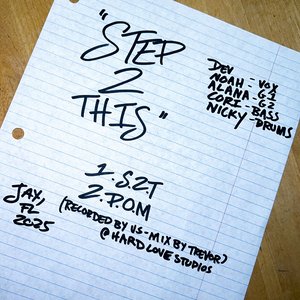 "STEP
2
THIS"
DEV - VOX
NOAH - G1
ALANA - G2
CORI - BASS
NICKY - DRUMS
1. S.2.T
2. P.O.M
(RECORDED BY US - MIX BY TREVOR)
@ HARD LOVE STUDIOS
JAX,
FL
2025